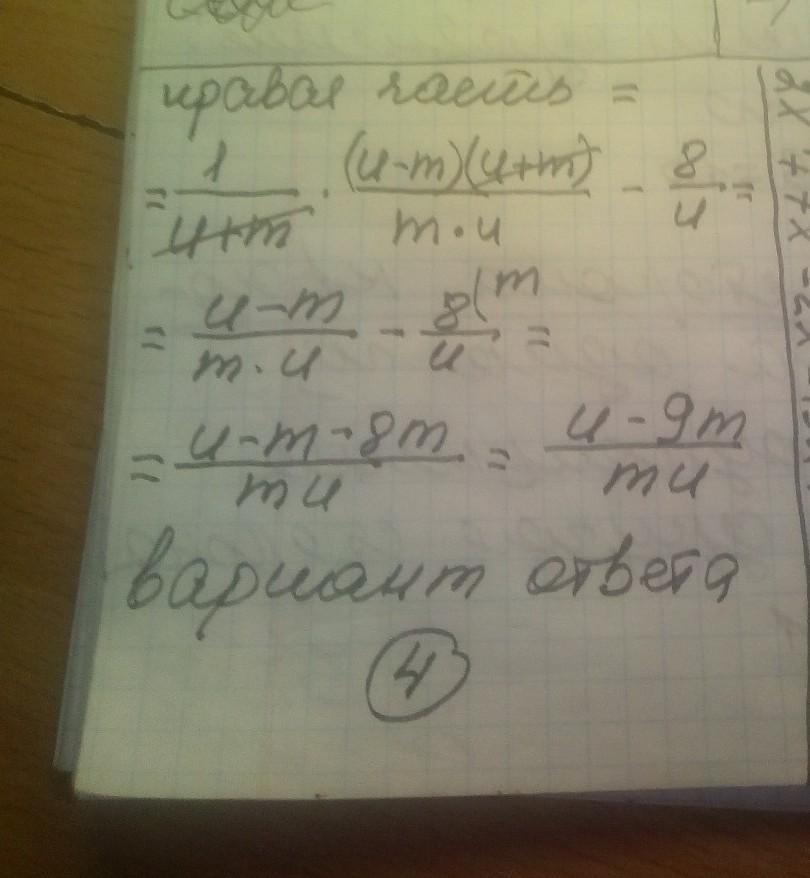 правая часть =
= 1/(u+m) · (u-m)(u+m)/(m·u) - 8/u =
= (u-m)/(m·u) - 8(m/u =
= (u-m-8m)/(mu) = (u-9m)/(mu)
вариант ответа
4